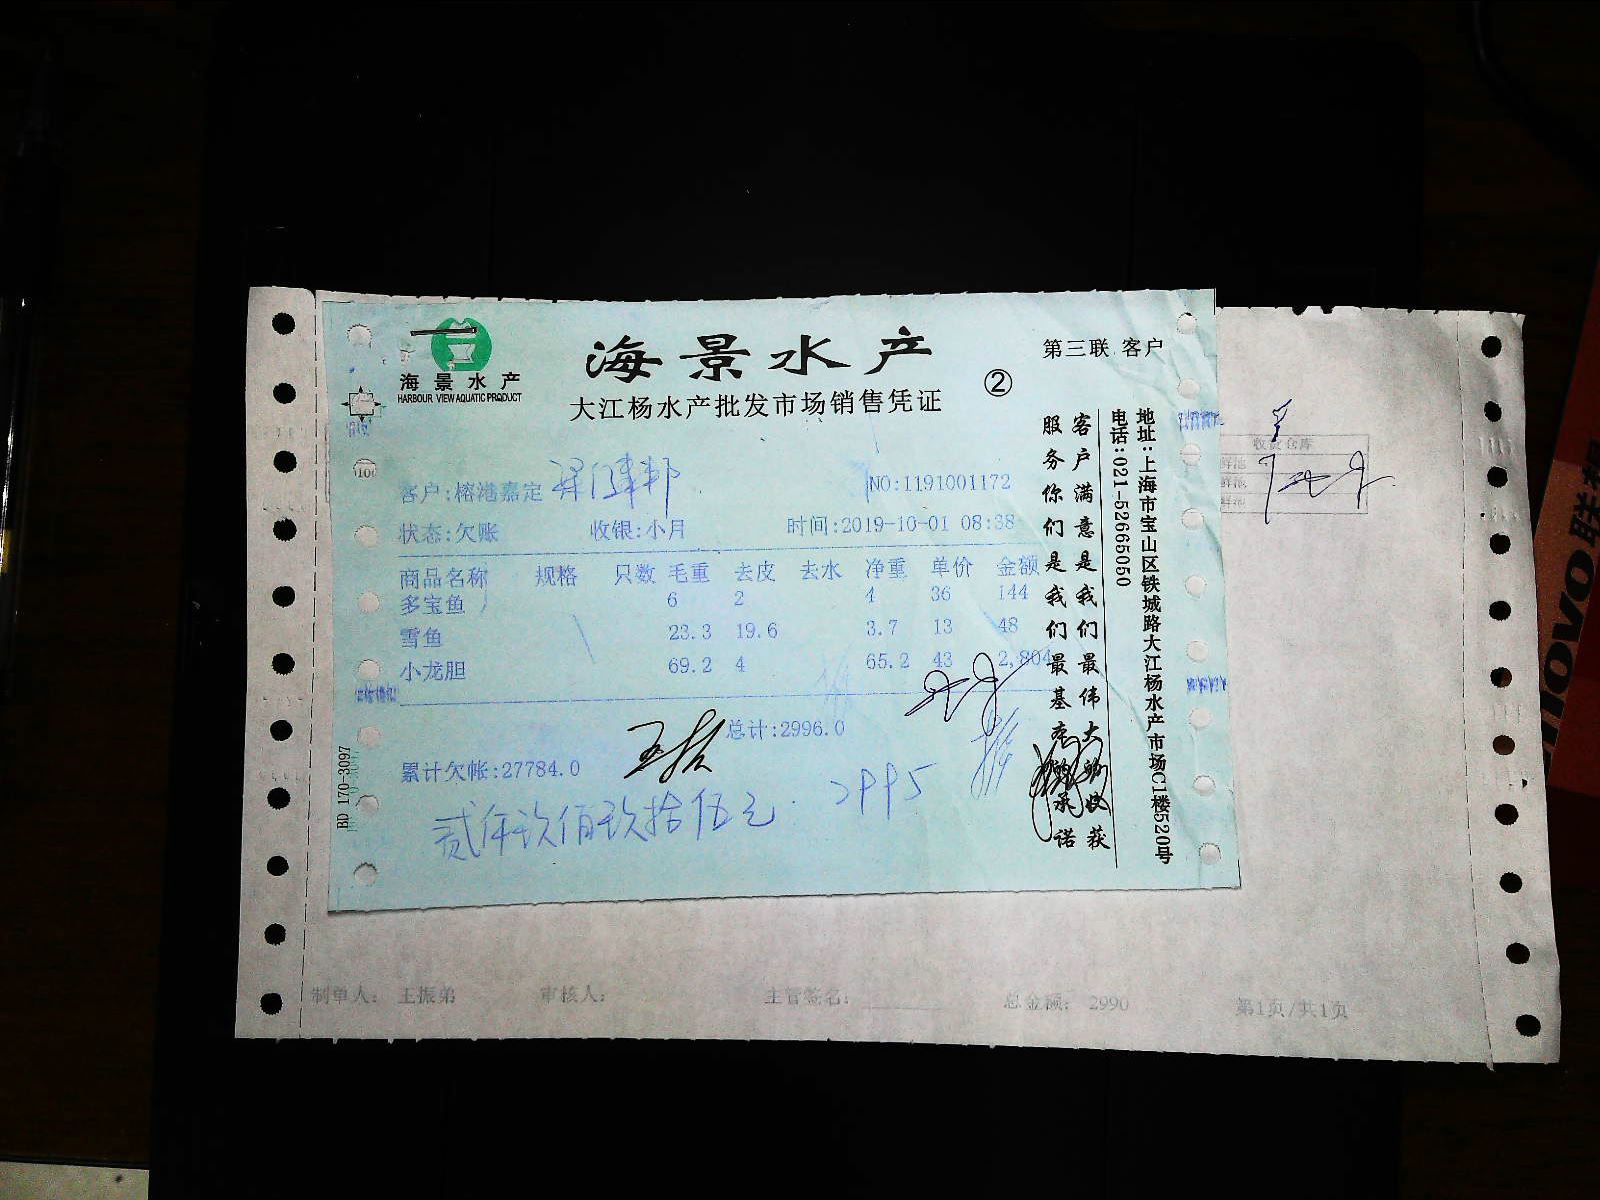 海景水产
HARBOUR VIEW AQUATIC PRODUCT
海景水产
大江杨水产批发市场销售凭证
②
第三联 客户
客户:榕港嘉定
NO:1191001172
状态:欠账 收银:小月 时间:2019-10-01 08:38
商品名称 规格 只数 毛重 去皮 去水 净重 单价 金额
多宝鱼 6 2 4 36 144
雪鱼 23.3 19.6 3.7 13 48
小龙胆 69.2 4 65.2 43 2,804
总计:2996.0
累计欠帐:27784.0
贰仟玖佰玖拾伍元 2995
客户满意是我们最伟大的收获
服务你们是我们最基本的承诺
地址:上海市宝山区铁城路大江杨水产市场C1楼520号
电话:021-52665050
BD 170-3097
收货仓库
鲜池
鲜池
鲜池
制单人: 王振弟 审核人: 主管签名: 总金额: 2990 第1页/共1页
lenovo联想